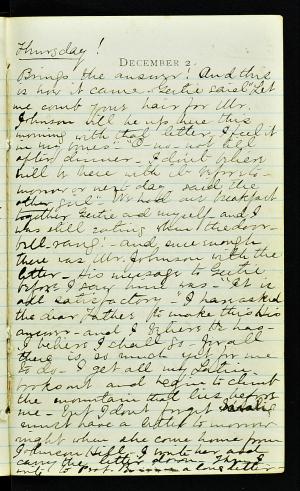 Thursday!
DECEMBER 2.
Brings the answer! And this
is how it came - Gertie said "Let
me comb your hair for Mr.
Johnson will be up here this
morning with that letter, I feel it
in my bones" "O no - not till
after dinner - I don't believe
will be here with it before to-
morrow or next day" said the
other girl". We had our breakfast
together Gertie and myself and I
was still eating when the door-
bell rang! - and sure enough
there was Mr. Johnson with the
letter - His message to Gertie
before I saw him was - "It is
all satisfactory" I have asked
the dear Father to make this his
answer - and I believe he has -
I believe I shall go - For all
there is so much yet for me
to do - I get all my Latin
books out and begin to climb
the mountain that lies before
me - but I don't forget
must have a letter to-morrow
night when she comes home from
Johnson Hill. I wrote her and
carry the letter down
to Post. a long letter